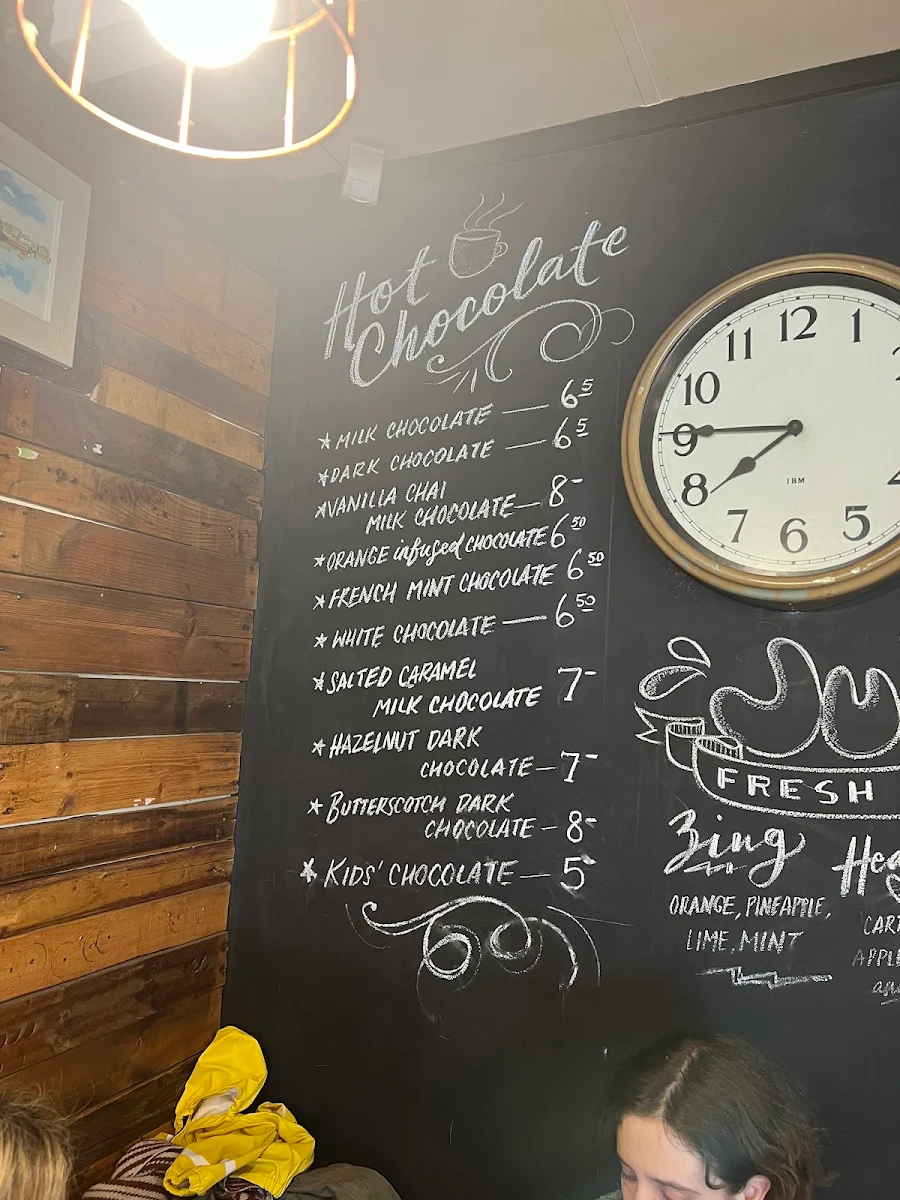 Hot
Chocolate
* MILK CHOCOLATE — 6 5
* DARK CHOCOLATE — 6 5
* VANILLA CHAI
MILK CHOCOLATE — 8-
* ORANGE infused CHOCOLATE 6 50
* FRENCH MINT CHOCOLATE 6 50
* WHITE CHOCOLATE — 6 50
* SALTED CARAMEL
MILK CHOCOLATE 7-
* HAZELNUT DARK
CHOCOLATE — 7-
* BUTTERSCOTCH DARK
CHOCOLATE — 8-
* KIDS' CHOCOLATE — 5-
12
1
11
10
9
8
7
6
5
IBM
FRESH
Zing
ORANGE, PINEAPPLE,
LIME, MINT